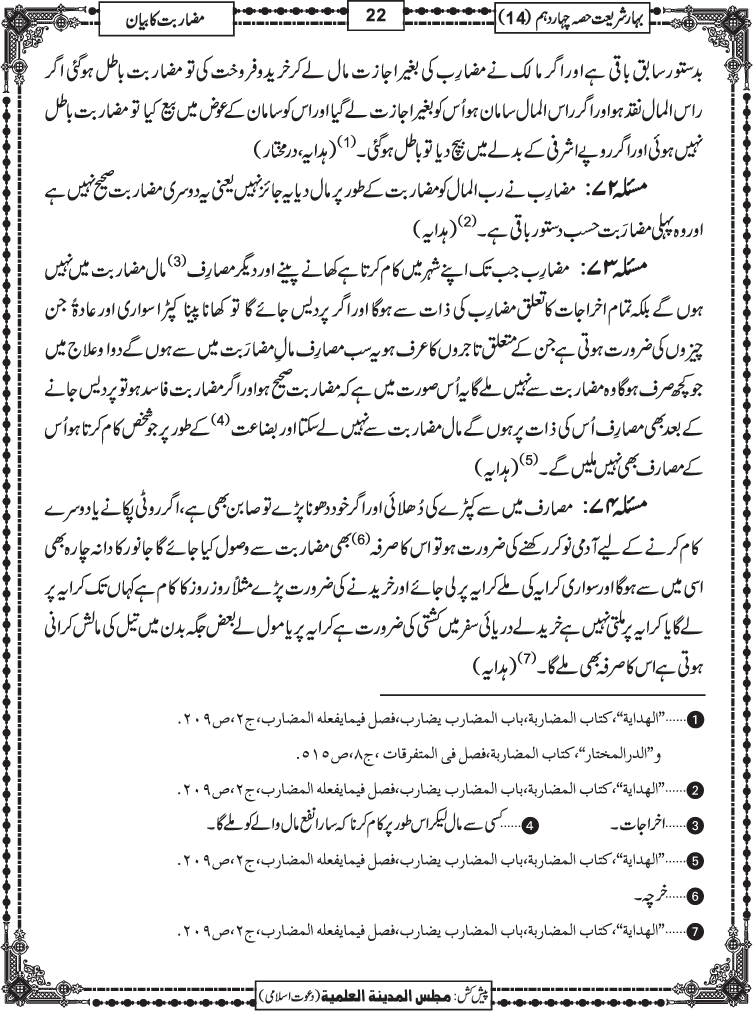 بہار شریعت حصہ چہاردہم (14)
22
مضاربت کا بیان
بدستور سابق باقی ہے اور اگر مالک نے مضارِب کی بغیر اجازت مال لے کر خرید و فروخت کی تو مضاربت باطل ہوگئی اگر
راس المال نقد ہو اور اگر راس المال سامان ہو اُس کو بغیر اجازت لے گیا اور اس کو سامان کے عوض میں بیع کیا تو مضاربت باطل
نہیں ہوئی اور اگر روپے اشرفی کے بدلے میں بیچ دیا تو باطل ہوگئی۔(1) (ہدایہ، درمختار)
مسئلہ ۷۲: مضارِب نے رب المال کو مضاربت کے طور پر مال دیا یہ جائز نہیں یعنی یہ دوسری مضاربت صحیح نہیں ہے
اور وہ پہلی مضارَبت حسب دستور باقی ہے۔(2) (ہدایہ)
مسئلہ ۷۳: مضارِب جب تک اپنے شہر میں کام کرتا ہے کھانے پینے اور دیگر مصارِف(3) مال مضاربت میں نہیں
ہوں گے بلکہ تمام اخراجات کا تعلق مضارِب کی ذات سے ہوگا اور اگر پردیس جائے گا تو کھانا پینا کپڑا سواری اور عادۃً جن
چیزوں کی ضرورت ہوتی ہے جن کے متعلق تاجروں کا عرف ہو یہ سب مصارِف مالِ مضارَبت میں سے ہوں گے دوا و علاج میں
جو کچھ صرف ہوگا وہ مضاربت سے نہیں ملے گا یہ اُس صورت میں ہے کہ مضاربت صحیح ہو اور اگر مضاربت فاسد ہو تو پردیس جانے
کے بعد بھی مصارِف اُس کی ذات پر ہوں گے مال مضاربت سے نہیں لے سکتا اور بضاعت(4) کے طور پر جو شخص کام کرتا ہو اُس
کے مصارف بھی نہیں ملیں گے۔(5) (ہدایہ)
مسئلہ ۷۴: مصارف میں سے کپڑے کی دُھلائی اور اگر خود دھونا پڑے تو صابن بھی ہے، اگر روٹی پکانے یا دوسرے
کام کرنے کے لیے آدمی نوکر رکھنے کی ضرورت ہو تو اس کا صرفہ(6) بھی مضاربت سے وصول کیا جائے گا جانور کا دانہ چارہ بھی
اسی میں سے ہوگا اور سواری کرایہ کی ملے کرایہ پر لی جائے اور خریدنے کی ضرورت پڑے مثلاً روز روز کا کام ہے کہاں تک کرایہ پر
لے گا یا کرایہ پر ملتی نہیں ہے خرید لے دریائی سفر میں کشتی کی ضرورت ہے کرایہ پر یا مول لے بعض جگہ بدن میں تیل کی مالش کرانی
ہوتی ہے اس کا صرفہ بھی ملے گا۔(7) (ہدایہ)
1 ......"الھدایة"، کتاب المضاربة، باب المضارب یضارب، فصل فیما یفعله المضارب، ج۲، ص۲۰۹.
و"الدرالمختار"، کتاب المضاربة، فصل فی المتفرقات، ج۸، ص۵۱۵.
2 ......"الھدایة"، کتاب المضاربة، باب المضارب یضارب، فصل فیما یفعله المضارب، ج۲، ص۲۰۹.
3 ......اخراجات۔ 4 ......کسی سے مال لیکر اس طور پر کام کرنا کہ سارا نفع مال والے کو ملے گا۔
5 ......"الھدایة"، کتاب المضاربة، باب المضارب یضارب، فصل فیما یفعله المضارب، ج۲، ص۲۰۹.
6 ......خرچہ۔
7 ......"الھدایة"، کتاب المضاربة، باب المضارب یضارب، فصل فیما یفعله المضارب، ج۲، ص۲۰۹.
پیش کش: مجلس المدینة العلمیة (دعوت اسلامی)